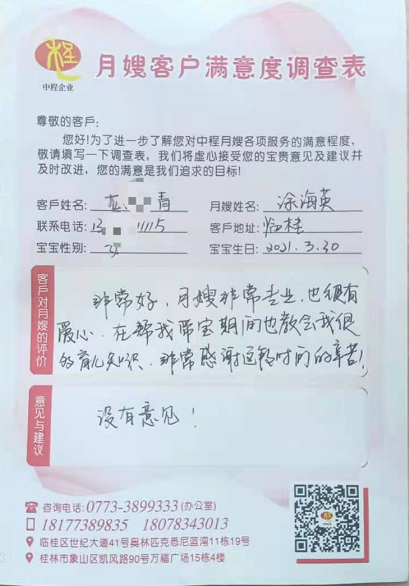 中程企业
月嫂客户满意度调查表
尊敬的客户:
您好!为了进一步了解您对中程月嫂各项服务的满意程度,
敬请填写一下调查表,我们将虚心接受您的宝贵意见及建议并
及时改进,您的满意是我们追求的目标!
客户姓名: 青 月嫂姓名: 涂海英
联系电话: 13 11115 客户地址: 临桂
宝宝性别: 宝宝生日: 2021.3.30
客户对月嫂的评价
非常好,月嫂非常专业,也很有
爱心.在帮我带宝期间也教会我很
的育儿知识.非常感谢这段时间的辛苦!
意见与建议
没有意见!
咨询电话:0773-3899333(办公室)
18177389835 18078343013
临桂区世纪大道41号奥林匹克悉尼蓝湾11栋19号
桂林市象山区凯风路90号万福广场15栋4楼